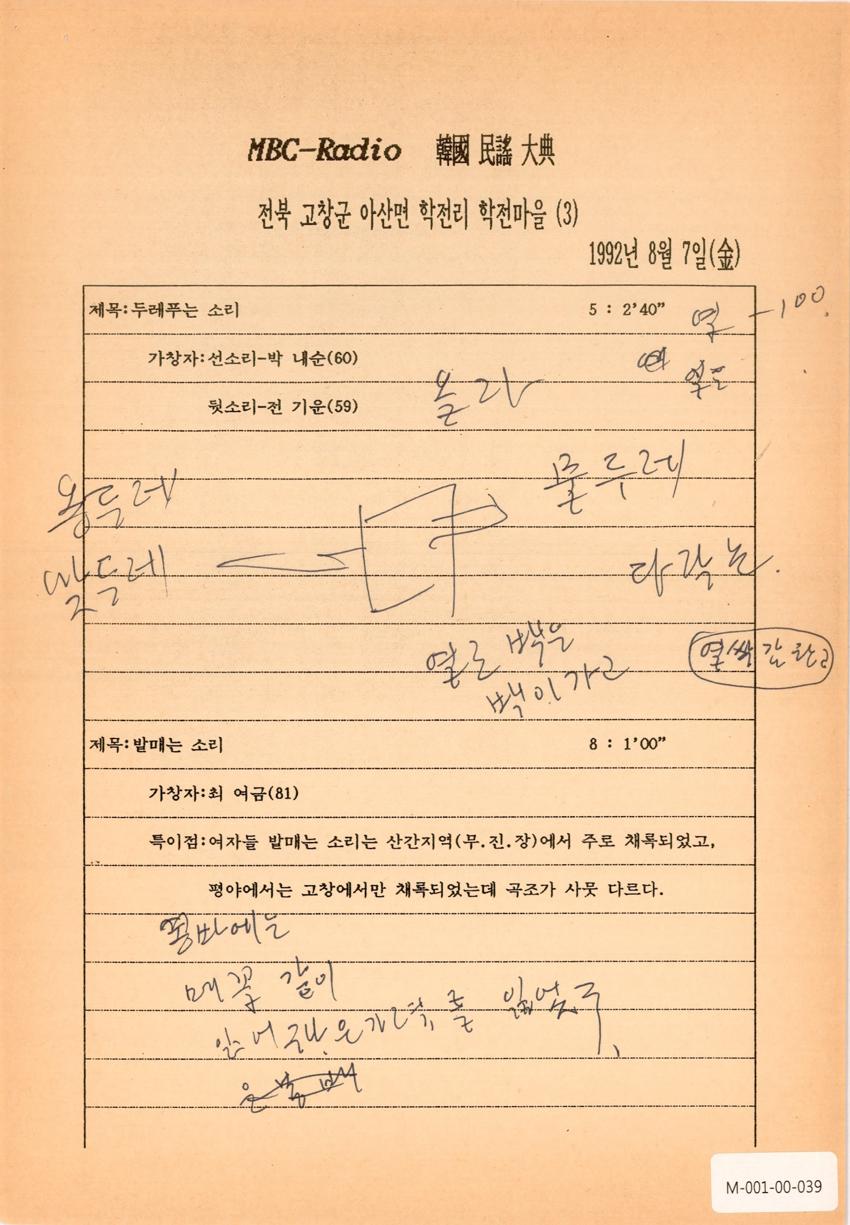 MBC-Radio 韓國 民謠 大典
전북 고창군 아산면 학전리 학전마을 (3)
1992년 8월 7일(金)
제목:두레푸는 소리 5 : 2'40"
열 -100.
가창자:선소리-박 내순(60)
열로
뒷소리-전 기운(59)
올라
물두레
용두레
맞두레
다락논.
열로 백은
백이 가고
열싹 갈란고
제목:발매는 소리 8 : 1'00"
가창자:최 여금(81)
특이점:여자들 발매는 소리는 산간지역(무.진.장)에서 주로 채록되었고,
평야에서는 고창에서만 채록되었는데 곡조가 사뭇 다르다.
콩밭에는
메꽃 같이
M-001-00-039